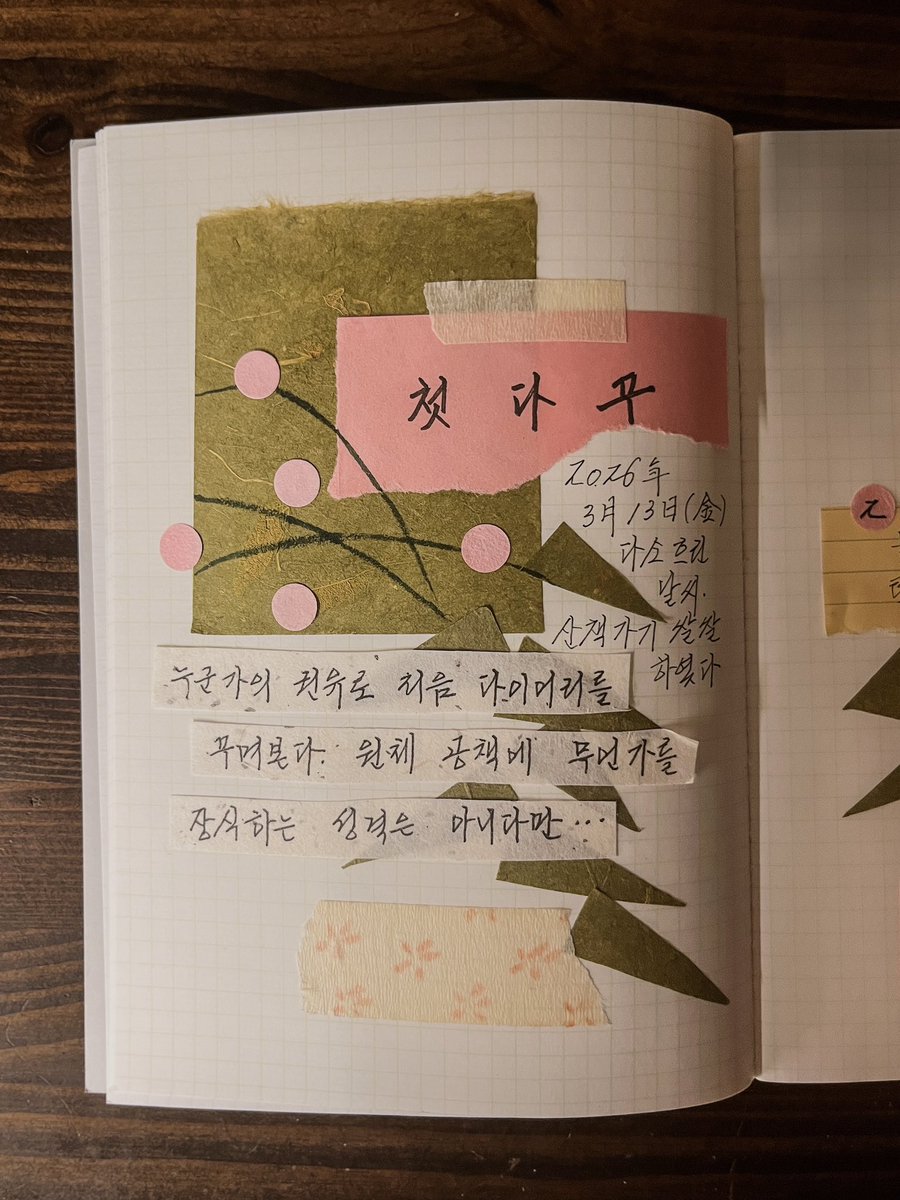 첫 다 꾸
2026年
3月 13日(金)
다소 흐린
날씨.
산책가기 쌀쌀
하였다
누군가의 권유로 처음 다이어리를
꾸며본다. 원체 공책에 무언가를
장식하는 성격은 아니다만…